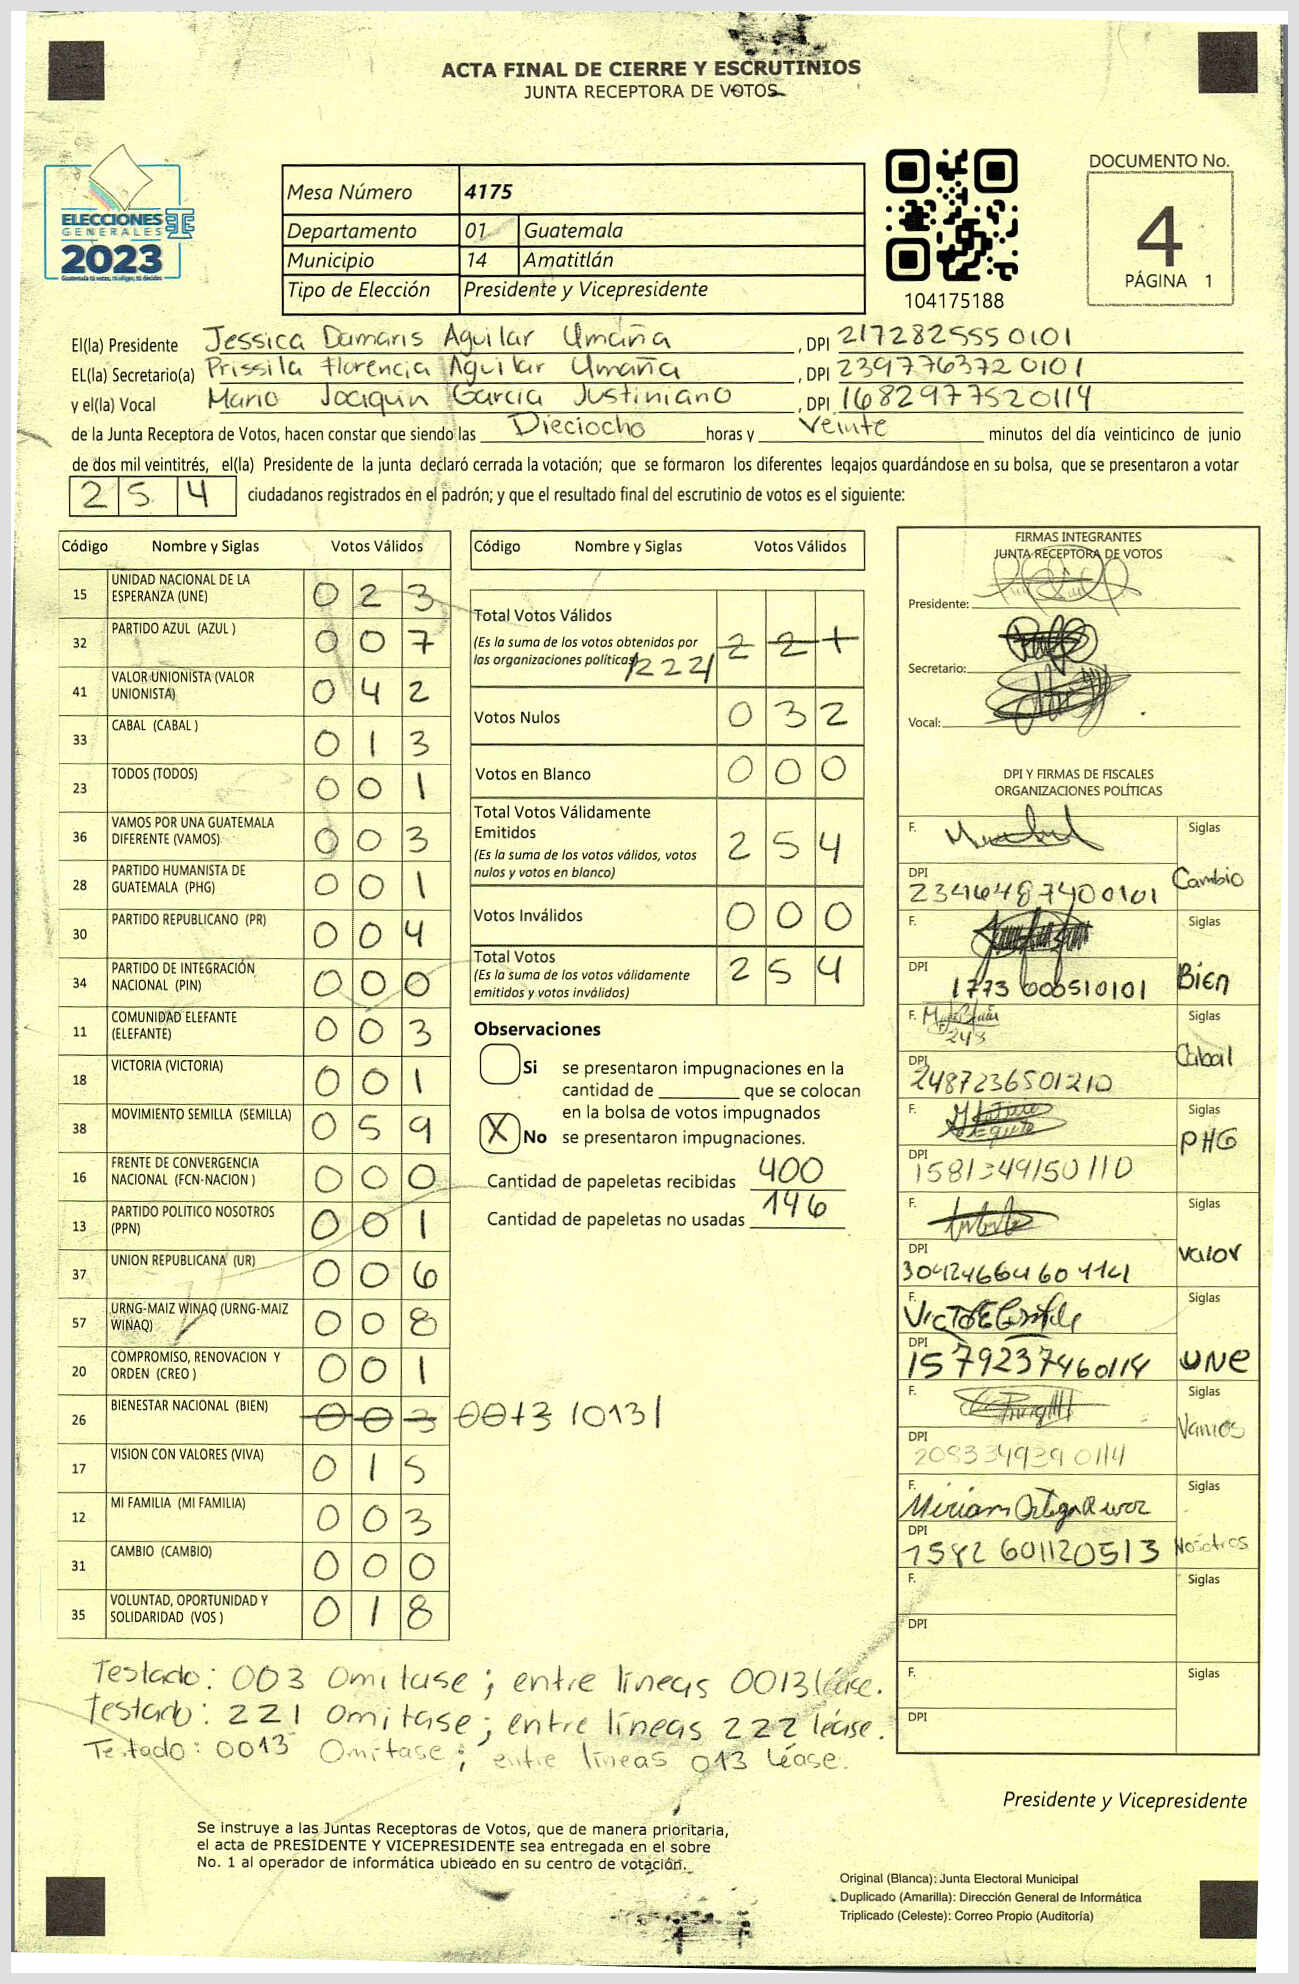 ACTA FINAL DE CIERRE Y ESCRUTINIOS
JUNTA RECEPTORA DE VOTOS
ELECCIONES
GENERALES
2023
Guatemala tú votas, tú eliges, tú decides
Mesa Número 4175
Departamento 01 Guatemala
Municipio 14 Amatitlán
Tipo de Elección Presidente y Vicepresidente
104175188
DOCUMENTO No.
4
PÁGINA 1
El(la) Presidente Jessica Damaris Aguilar Umaña, DPI 2172825550101
EL(la) Secretario(a) Prissila Florencia Aguilar Umaña, DPI 2397763720101
y el(la) Vocal Mario Joaquin Garcia Justiniano, DPI 1682977520114
de la Junta Receptora de Votos, hacen constar que siendo las Dieciocho horas y Veinte minutos del día veinticinco de junio
de dos mil veintitrés, el(la) Presidente de la junta declaró cerrada la votación; que se formaron los diferentes legajos guardándose en su bolsa, que se presentaron a votar
254 ciudadanos registrados en el padrón; y que el resultado final del escrutinio de votos es el siguiente:
Código Nombre y Siglas Votos Válidos
15 UNIDAD NACIONAL DE LA ESPERANZA (UNE) 0 2 3
32 PARTIDO AZUL (AZUL ) 0 0 7
41 VALOR UNIONISTA (VALOR UNIONISTA) 0 4 2
33 CABAL (CABAL ) 0 1 3
23 TODOS (TODOS) 0 0 1
36 VAMOS POR UNA GUATEMALA DIFERENTE (VAMOS) 0 0 3
28 PARTIDO HUMANISTA DE GUATEMALA (PHG) 0 0 1
30 PARTIDO REPUBLICANO (PR) 0 0 4
34 PARTIDO DE INTEGRACIÓN NACIONAL (PIN) 0 0 0
11 COMUNIDAD ELEFANTE (ELEFANTE) 0 0 3
18 VICTORIA (VICTORIA) 0 0 1
38 MOVIMIENTO SEMILLA (SEMILLA) 0 5 9
16 FRENTE DE CONVERGENCIA NACIONAL (FCN-NACION ) 0 0 0
13 PARTIDO POLITICO NOSOTROS (PPN) 0 0 1
37 UNION REPUBLICANA (UR) 0 0 6
57 URNG-MAIZ WINAQ (URNG-MAIZ WINAQ) 0 0 8
20 COMPROMISO, RENOVACION Y ORDEN (CREO ) 0 0 1
26 BIENESTAR NACIONAL (BIEN) 0 0 3 0013 /013/
17 VISION CON VALORES (VIVA) 0 1 5
12 MI FAMILIA (MI FAMILIA) 0 0 3
31 CAMBIO (CAMBIO) 0 0 0
35 VOLUNTAD, OPORTUNIDAD Y SOLIDARIDAD (VOS ) 0 1 8
Código Nombre y Siglas Votos Válidos
Total Votos Válidos
(Es la suma de los votos obtenidos por
las organizaciones políticas) /222/ 2 2 1
Votos Nulos 0 3 2
Votos en Blanco 0 0 0
Total Votos Válidamente
Emitidos
(Es la suma de los votos válidos, votos
nulos y votos en blanco) 2 5 4
Votos Inválidos 0 0 0
Total Votos
(Es la suma de los votos válidamente
emitidos y votos inválidos) 2 5 4
Observaciones
Si se presentaron impugnaciones en la
cantidad de ________ que se colocan
en la bolsa de votos impugnados
X No se presentaron impugnaciones.
Cantidad de papeletas recibidas 400
Cantidad de papeletas no usadas 146
FIRMAS INTEGRANTES
JUNTA RECEPTORA DE VOTOS
Presidente:
Secretario:
Vocal:
DPI Y FIRMAS DE FISCALES
ORGANIZACIONES POLÍTICAS
F. Siglas
DPI 2346487400101 Cambio
F. Siglas
DPI 1773 000510101 Bien
F. Siglas
DPI 2487236501210 Cabal
F. Siglas
DPI 1581349150110 PHG
F. Siglas
DPI Valor
F. Siglas
DPI 1579237460114 UNE
F. Siglas
DPI 2083349390114 Vamos
F. Miriam Ortega Siglas
DPI 1582 601120513 Nosotros
F. Siglas
DPI
F. Siglas
DPI
Testado: 003 Omitase; entre líneas 0013 léase.
Testado: 221 Omitase; entre líneas 222 léase.
Testado: 0013 Omitase; entre líneas 013 Léase.
Presidente y Vicepresidente
Se instruye a las Juntas Receptoras de Votos, que de manera prioritaria,
el acta de PRESIDENTE Y VICEPRESIDENTE sea entregada en el sobre
No. 1 al operador de informática ubicado en su centro de votación.
Original (Blanca): Junta Electoral Municipal
Duplicado (Amarilla): Dirección General de Informática
Triplicado (Celeste): Correo Propio (Auditoría)